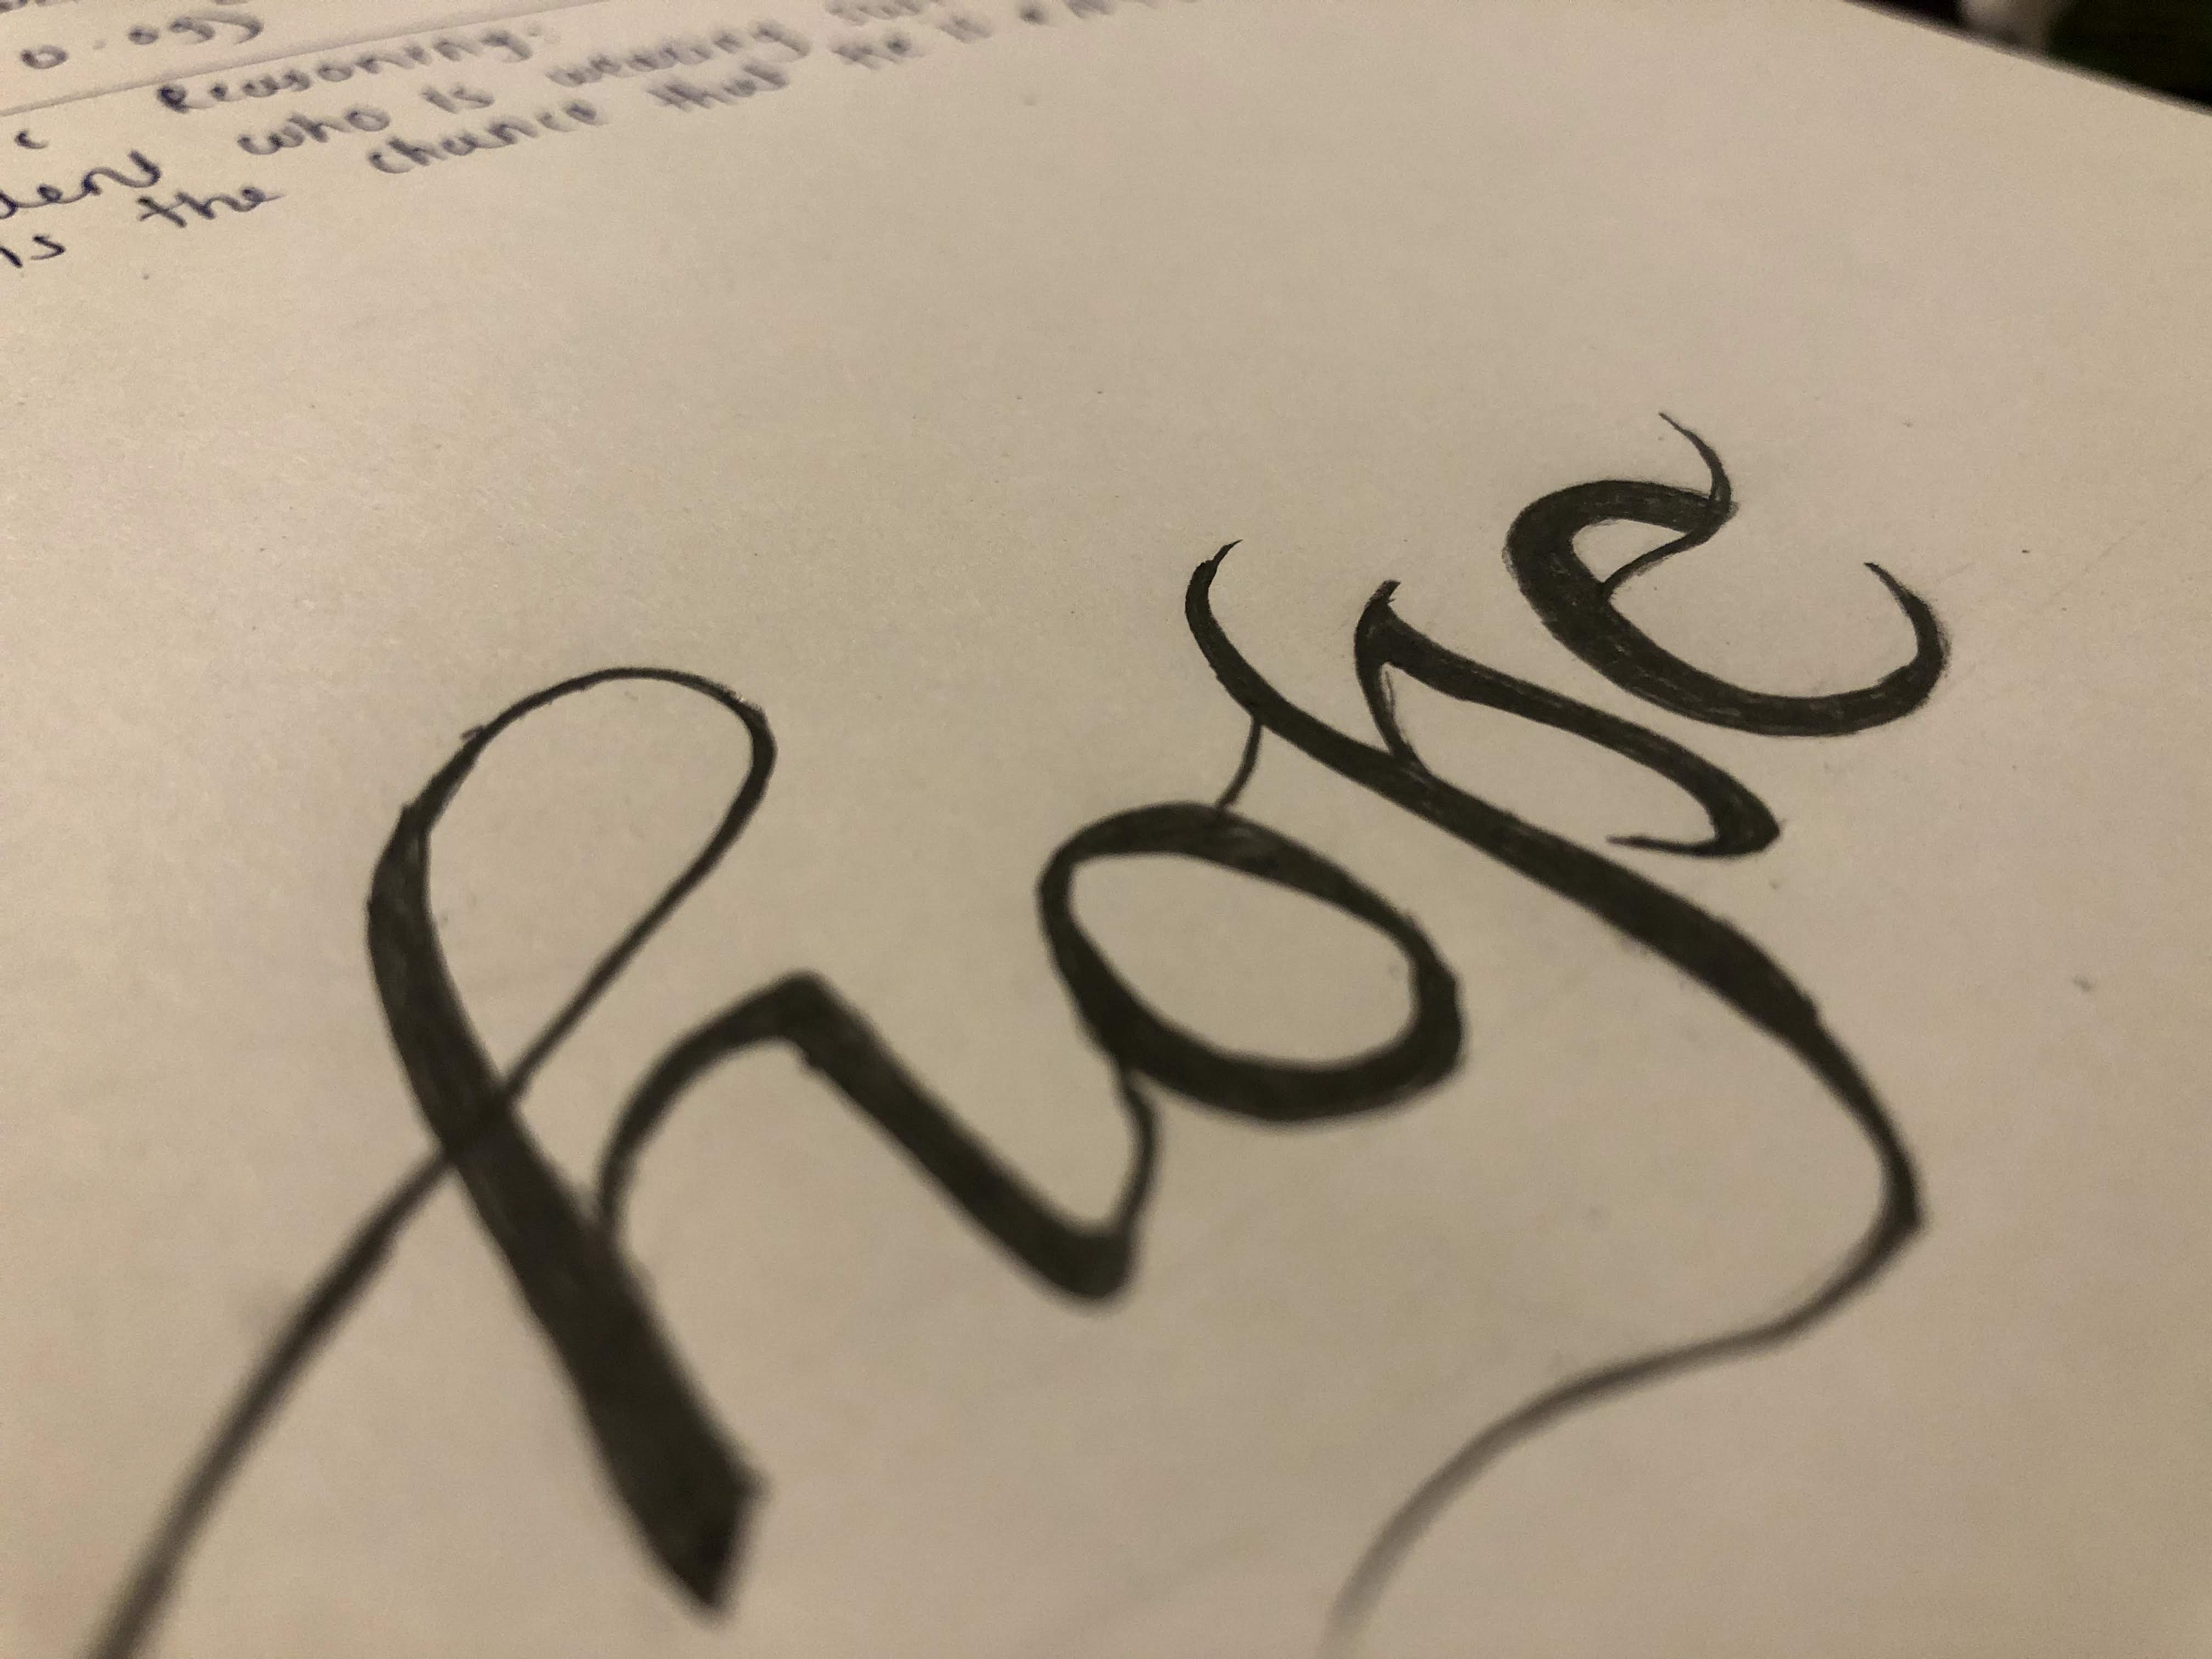 0.095
c Reasoning.
dent who is wearing
is the chance that he is
hope